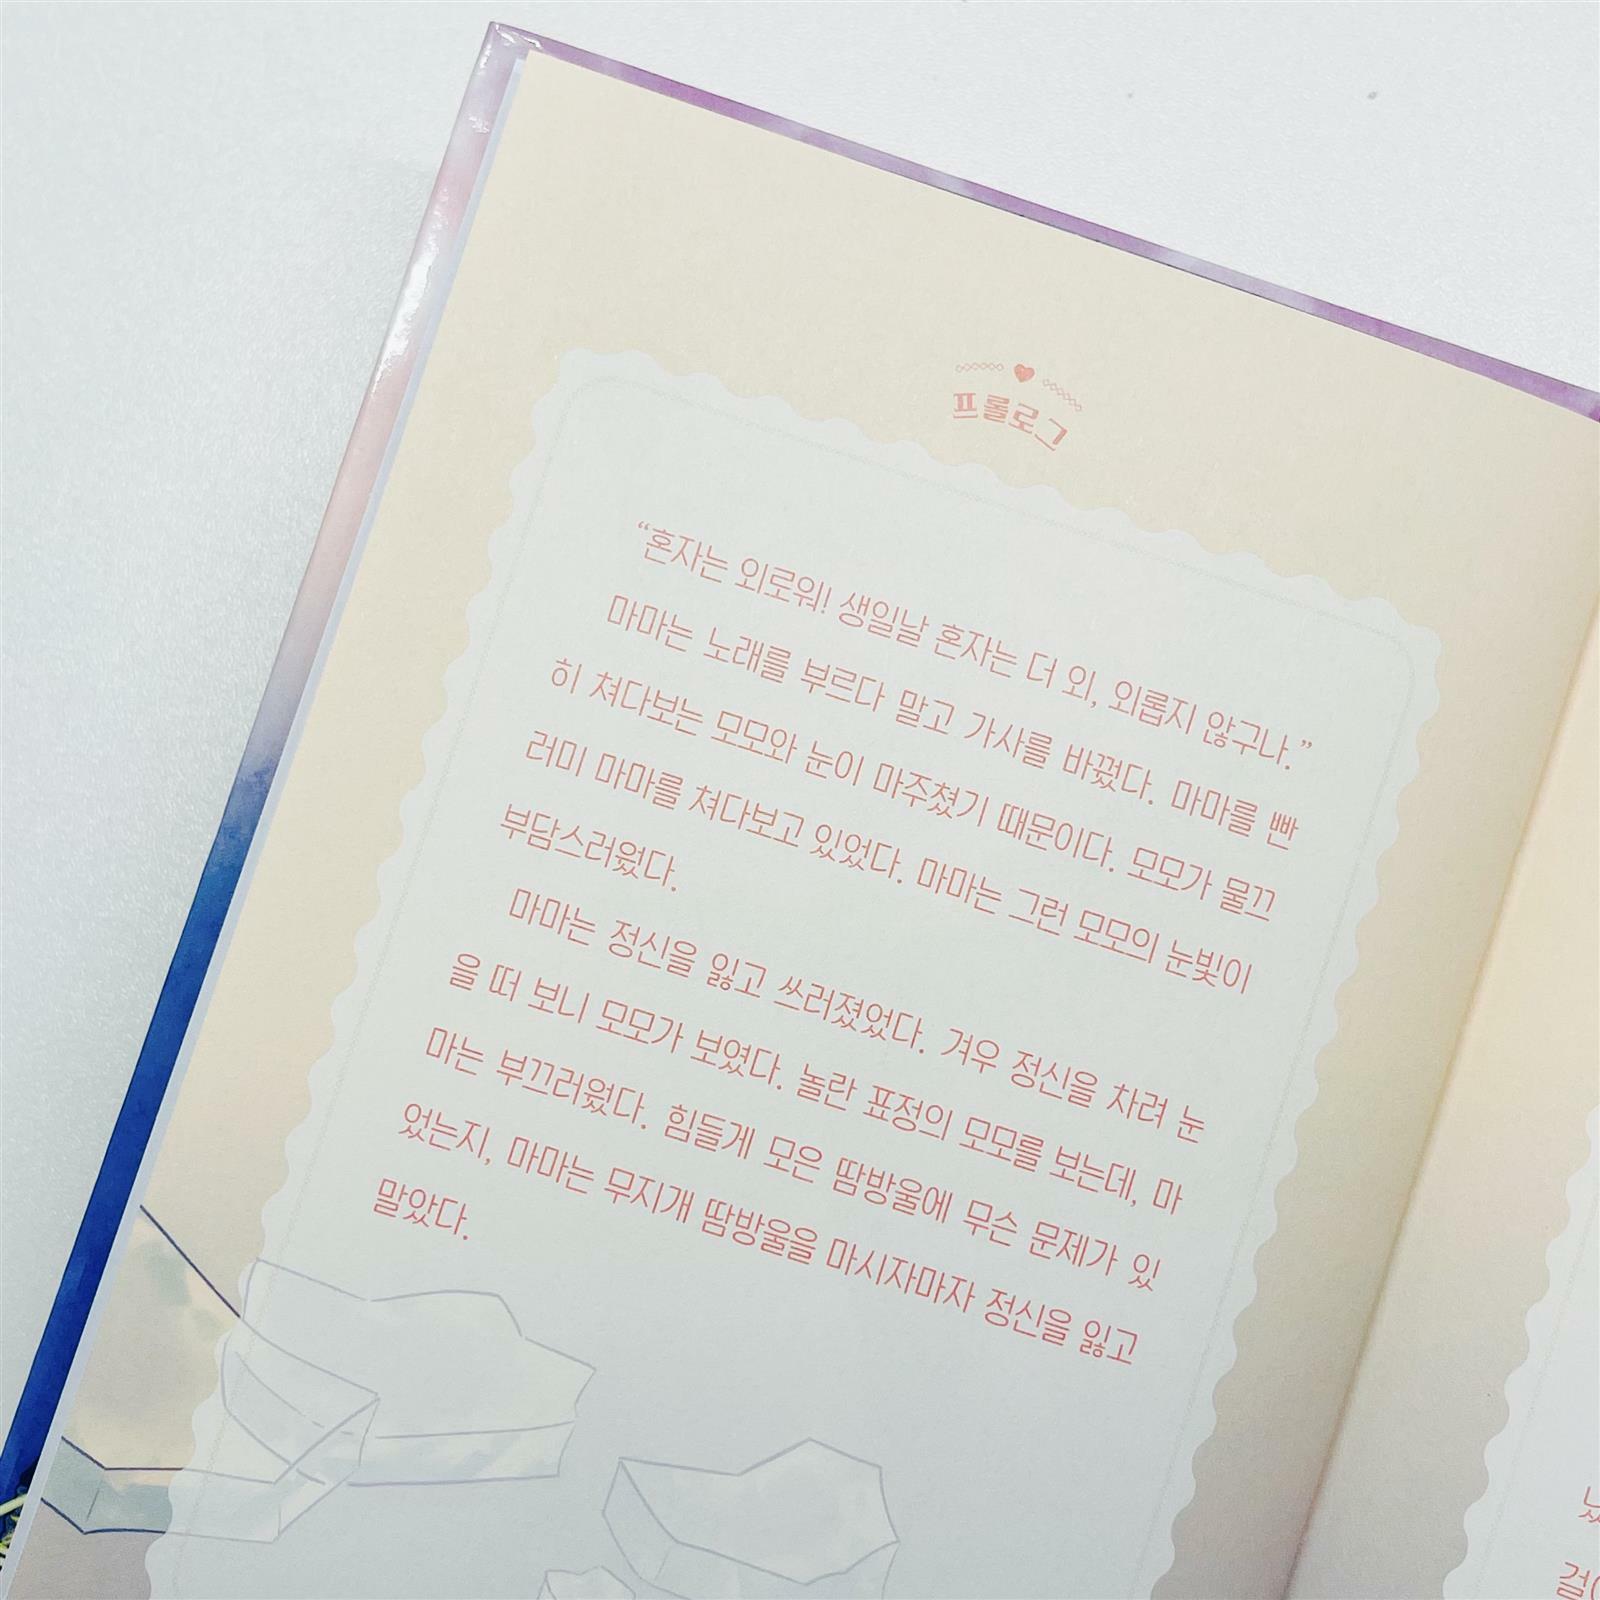 프롤로그
“혼자는 외로워! 생일날 혼자는 더 외, 외롭지 않구나.”
마마는 노래를 부르다 말고 가사를 바꿨다. 마마를 빤
히 쳐다보는 모모와 눈이 마주쳤기 때문이다. 모모가 물끄
러미 마마를 쳐다보고 있었다. 마마는 그런 모모의 눈빛이
부담스러웠다.
마마는 정신을 잃고 쓰러졌었다. 겨우 정신을 차려 눈
을 떠 보니 모모가 보였다. 놀란 표정의 모모를 보는데, 마
마는 부끄러웠다. 힘들게 모은 땀방울에 무슨 문제가 있
었는지, 마마는 무지개 땀방울을 마시자마자 정신을 잃고
말았다.